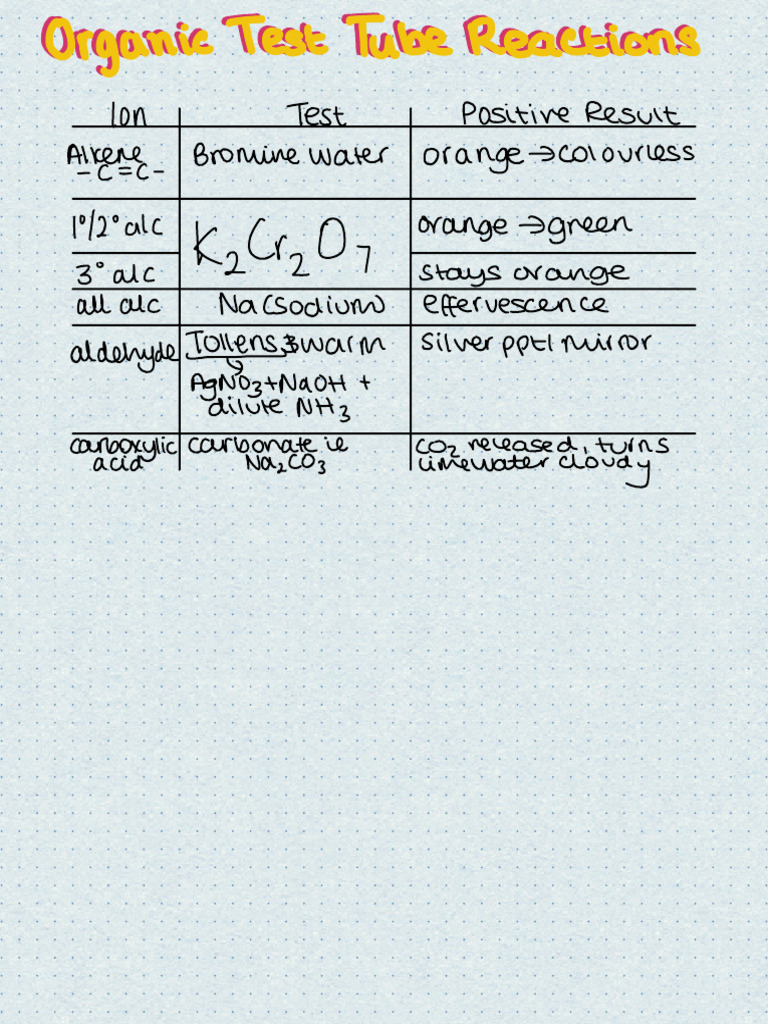 Organic Test Tube Reactions
Ion Test Positive Result
Alkene Bromine Water orange → colourless
-C=C-
1°/2° alc K2Cr2O7 orange → green
3° alc stays orange
all alc Na (sodium) effervescence
aldehyde Tollens, & warm Silver ppt/mirror
AgNO3 + NaOH +
dilute NH3
carboxylic carbonate ie CO2 released, turns
acid Na2CO3 limewater cloudy